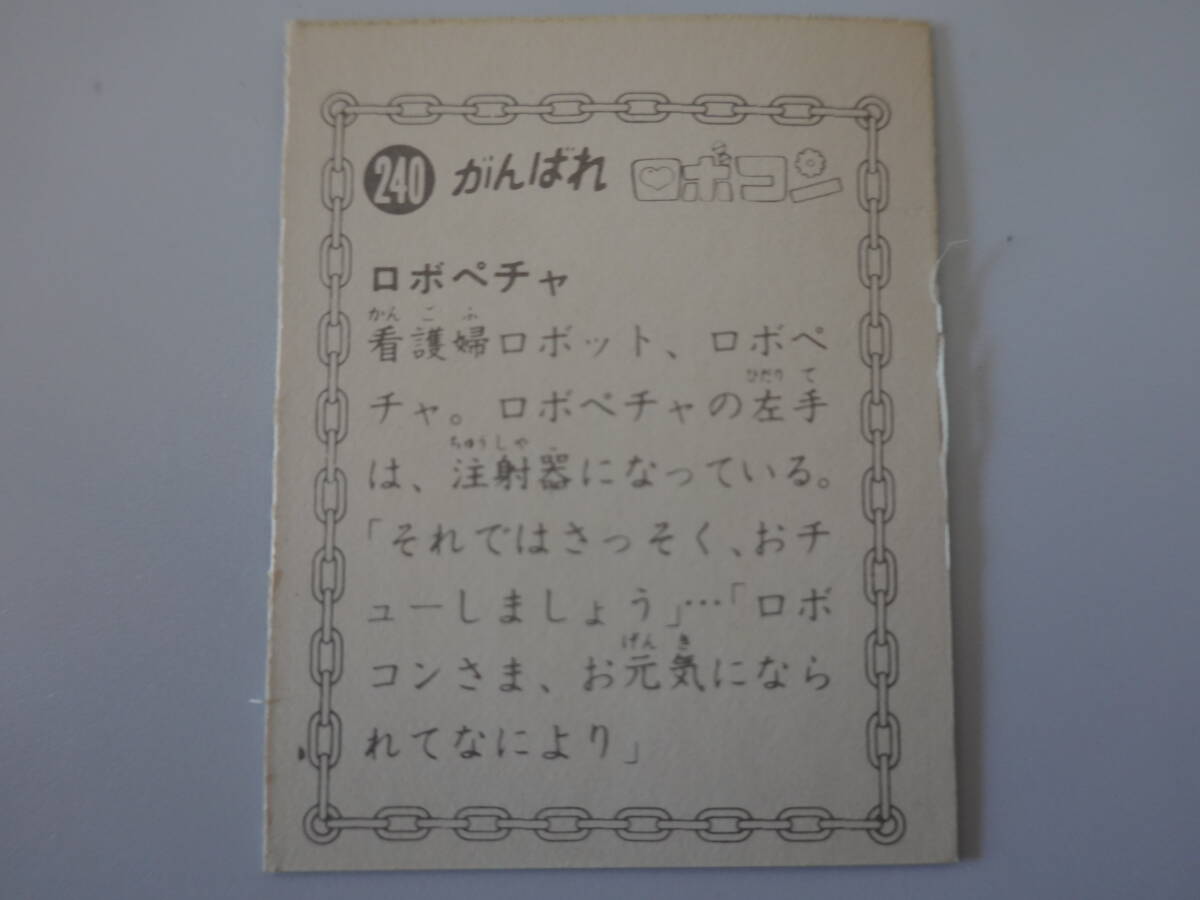 240 がんばれ ロボコン
ロボペチャ
かんごふ
看護婦ロボット、ロボペ
ひだりて
チャ。ロボペチャの左手
ちゅうしゃ
は、注射器になっている。
「それではさっそく、おチ
ューしましょう」…「ロボ
げんき
コンさま、お元気になら
れてなにより」